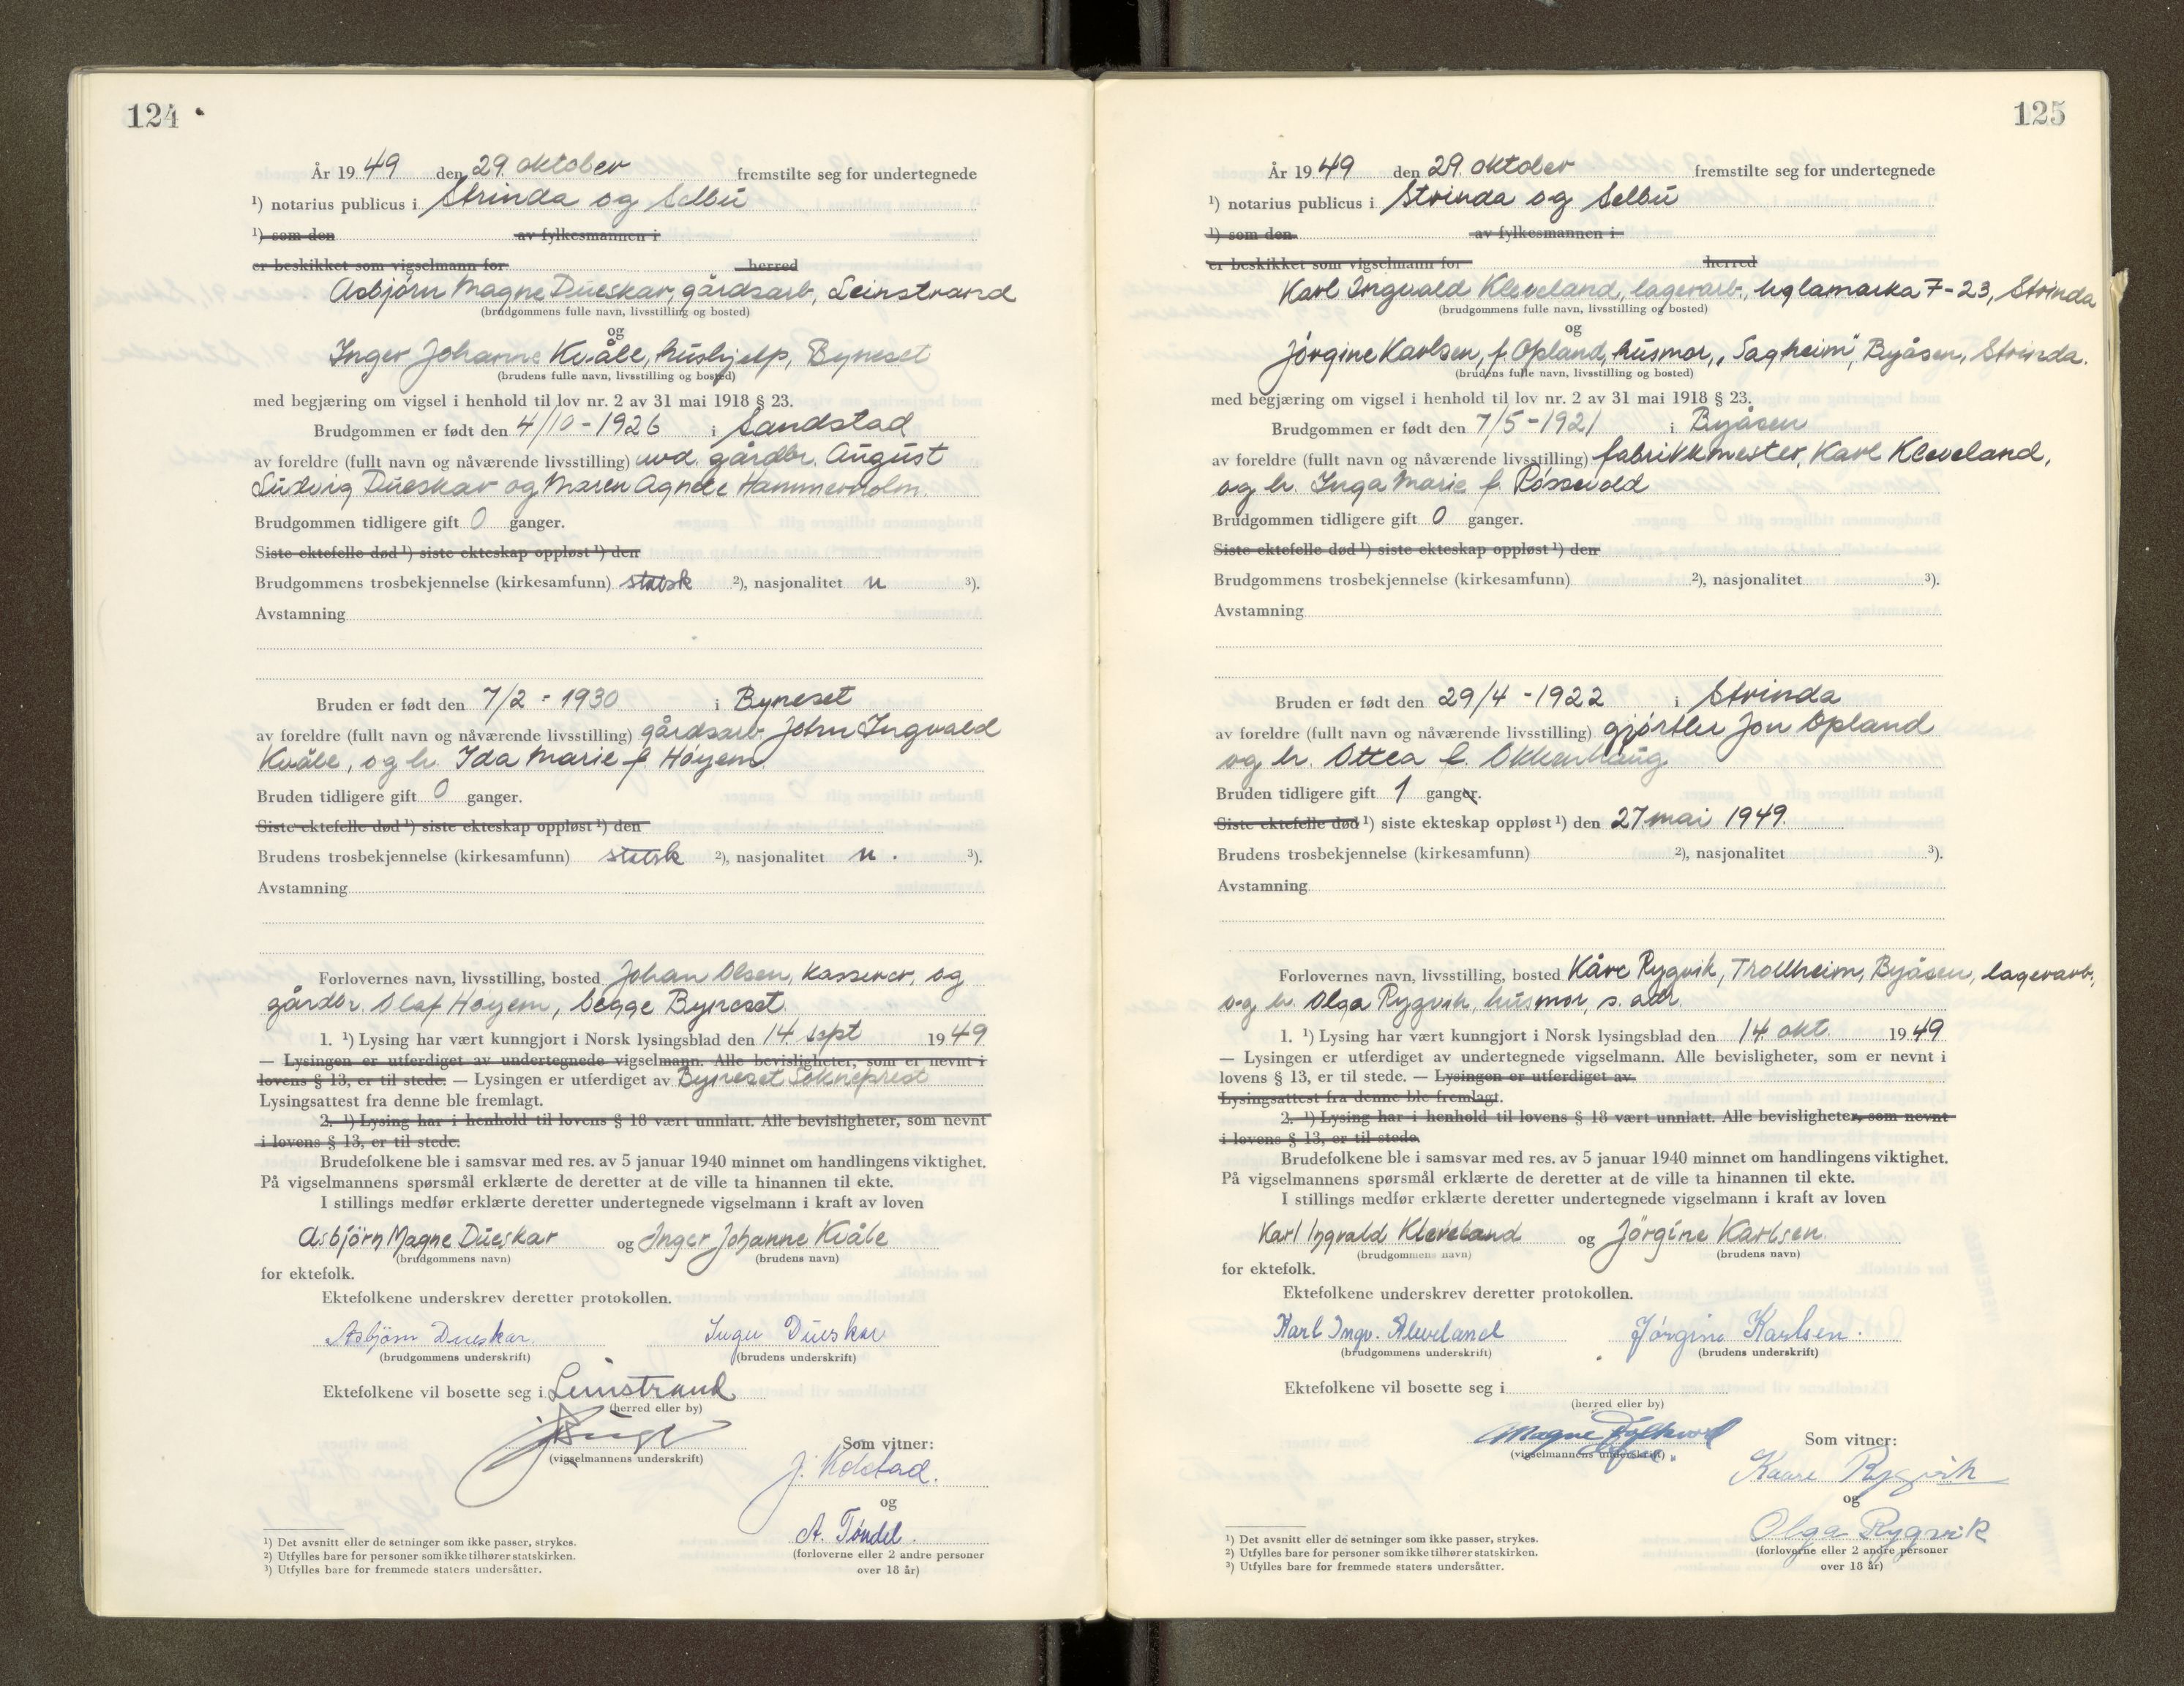 124
År 1949 den 29. oktober fremstilte seg for undertegnede
¹) notarius publicus i Strinda og Selbu
¹) som den av fylkesmannen i
er beskikket som vigselmann for herred
Asbjørn Magne Dueskar, gårdsarb, Leinstrand
(brudgommens fulle navn, livsstilling og bosted)
og
Inger Johanne Kvåle, hushjelp, Byneset
(brudens fulle navn, livsstilling og bosted)
med begjæring om vigsel i henhold til lov nr. 2 av 31 mai 1918 § 23.
Brudgommen er født den 4/10 - 1926 i Sandstad
av foreldre (fullt navn og nåværende livsstilling) avd. gårdbr. August
Ludvig Dueskar og Maren Agnele Hammerholm.
Brudgommen tidligere gift 0 ganger.
Siste ektefelle død ¹) siste ekteskap oppløst ¹) den
Brudgommens trosbekjennelse (kirkesamfunn) statsk ²), nasjonalitet n ³).
Avstamning
Bruden er født den 7/2 - 1930 i Byneset
av foreldre (fullt navn og nåværende livsstilling) gårdsarb. John Ingvald
Kvåle, og h. Ida Marie f. Høyem
Bruden tidligere gift 0 ganger.
Siste ektefelle død ¹) siste ekteskap oppløst ¹) den
Brudens trosbekjennelse (kirkesamfunn) statsk ²), nasjonalitet n . ³).
Avstamning
Forlovernes navn, livsstilling, bosted Johan Olsen, kasserer, og
gårdbr Olaf Høyem, begge Byneset.
1. ¹) Lysing har vært kunngjort i Norsk lysingsblad den 14. sept 1949
— Lysingen er utferdiget av undertegnede vigselmann. Alle bevisligheter, som er nevnt i
lovens § 13, er til stede. — Lysingen er utferdiget av Byneset Sokneprest
Lysingsattest fra denne ble fremlagt.
2. ¹) Lysing har i henhold til lovens § 18 vært unnlatt. Alle bevisligheter, som nevnt
i lovens § 13, er til stede.
Brudefolkene ble i samsvar med res. av 5 januar 1940 minnet om handlingens viktighet.
På vigselmannens spørsmål erklærte de deretter at de ville ta hinannen til ekte.
I stillings medfør erklærte deretter undertegnede vigselmann i kraft av loven
Asbjörn Magne Dueskar og Inger Johanne Kvåle
(brudgommens navn) (brudens navn)
for ektefolk.
Ektefolkene underskrev deretter protokollen.
Asbjørn Dueskar. Inger Dueskar
(brudgommens underskrift) (brudens underskrift)
Ektefolkene vil bosette seg i Leinstrand
(herred eller by)
Som vitner:
(vigselmannens underskrift)
J. Kolstad.
og
A. Tøndel.
(forloverne eller 2 andre personer
over 18 år)
¹) Det avsnitt eller de setninger som ikke passer, strykes.
²) Utfylles bare for personer som ikke tilhører statskirken.
³) Utfylles bare for fremmede staters undersåtter.
125
År 1949 den 29. oktober fremstilte seg for undertegnede
¹) notarius publicus i Strinda og Selbu
¹) som den av fylkesmannen i
er beskikket som vigselmann for herred
Karl Ingvald Kleveland, lagerarb., Uglamarka 7-23, Strinda
(brudgommens fulle navn, livsstilling og bosted)
og
Jørgine Karlsen, f. Opland, husmor, „Sagheim", Byåsen, Strinda.
(brudens fulle navn, livsstilling og bosted)
med begjæring om vigsel i henhold til lov nr. 2 av 31 mai 1918 § 23.
Brudgommen er født den 7/5 - 1921 i Byåsen
av foreldre (fullt navn og nåværende livsstilling) fabrikkmester, Karl Kleveland,
og h. Inga Marie f. Røssvold
Brudgommen tidligere gift 0 ganger.
Siste ektefelle død ¹) siste ekteskap oppløst ¹) den
Brudgommens trosbekjennelse (kirkesamfunn) ²), nasjonalitet ³).
Avstamning
Bruden er født den 29/4 - 1922 i Strinda
av foreldre (fullt navn og nåværende livsstilling) gjørtler Jon Opland
og h. Ottea f. Okkenhaug
Bruden tidligere gift 1 ganger.
Siste ektefelle død ¹) siste ekteskap oppløst ¹) den 27. mai 1949.
Brudens trosbekjennelse (kirkesamfunn) ²), nasjonalitet ³).
Avstamning
Forlovernes navn, livsstilling, bosted Kåre Rygvik, Trollheim, Byåsen, lagerarb.,
og h. Olga Rygvik, husmor, s. adr.
1. ¹) Lysing har vært kunngjort i Norsk lysingsblad den 14. okt 1949
— Lysingen er utferdiget av undertegnede vigselmann. Alle bevisligheter, som er nevnt i
lovens § 13, er til stede. — Lysingen er utferdiget av
Lysingsattest fra denne ble fremlagt.
2. ¹) Lysing har i henhold til lovens § 18 vært unnlatt. Alle bevisligheter, som nevnt
i lovens § 13, er til stede.
Brudefolkene ble i samsvar med res. av 5 januar 1940 minnet om handlingens viktighet.
På vigselmannens spørsmål erklærte de deretter at de ville ta hinannen til ekte.
I stillings medfør erklærte deretter undertegnede vigselmann i kraft av loven
Karl Ingvald Kleveland og Jörgine Karlsen
(brudgommens navn) (brudens navn)
for ektefolk.
Ektefolkene underskrev deretter protokollen.
Karl Ingv. Kleveland Jørgine Karlsen.
(brudgommens underskrift) (brudens underskrift)
Ektefolkene vil bosette seg i
(herred eller by)
Magne
Som vitner:
(vigselmannens underskrift)
Kaare Rygvik
og
Olga Rygvik
(forloverne eller 2 andre personer
over 18 år)
¹) Det avsnitt eller de setninger som ikke passer, strykes.
²) Utfylles bare for personer som ikke tilhører statskirken.
³) Utfylles bare for fremmede staters undersåtter.